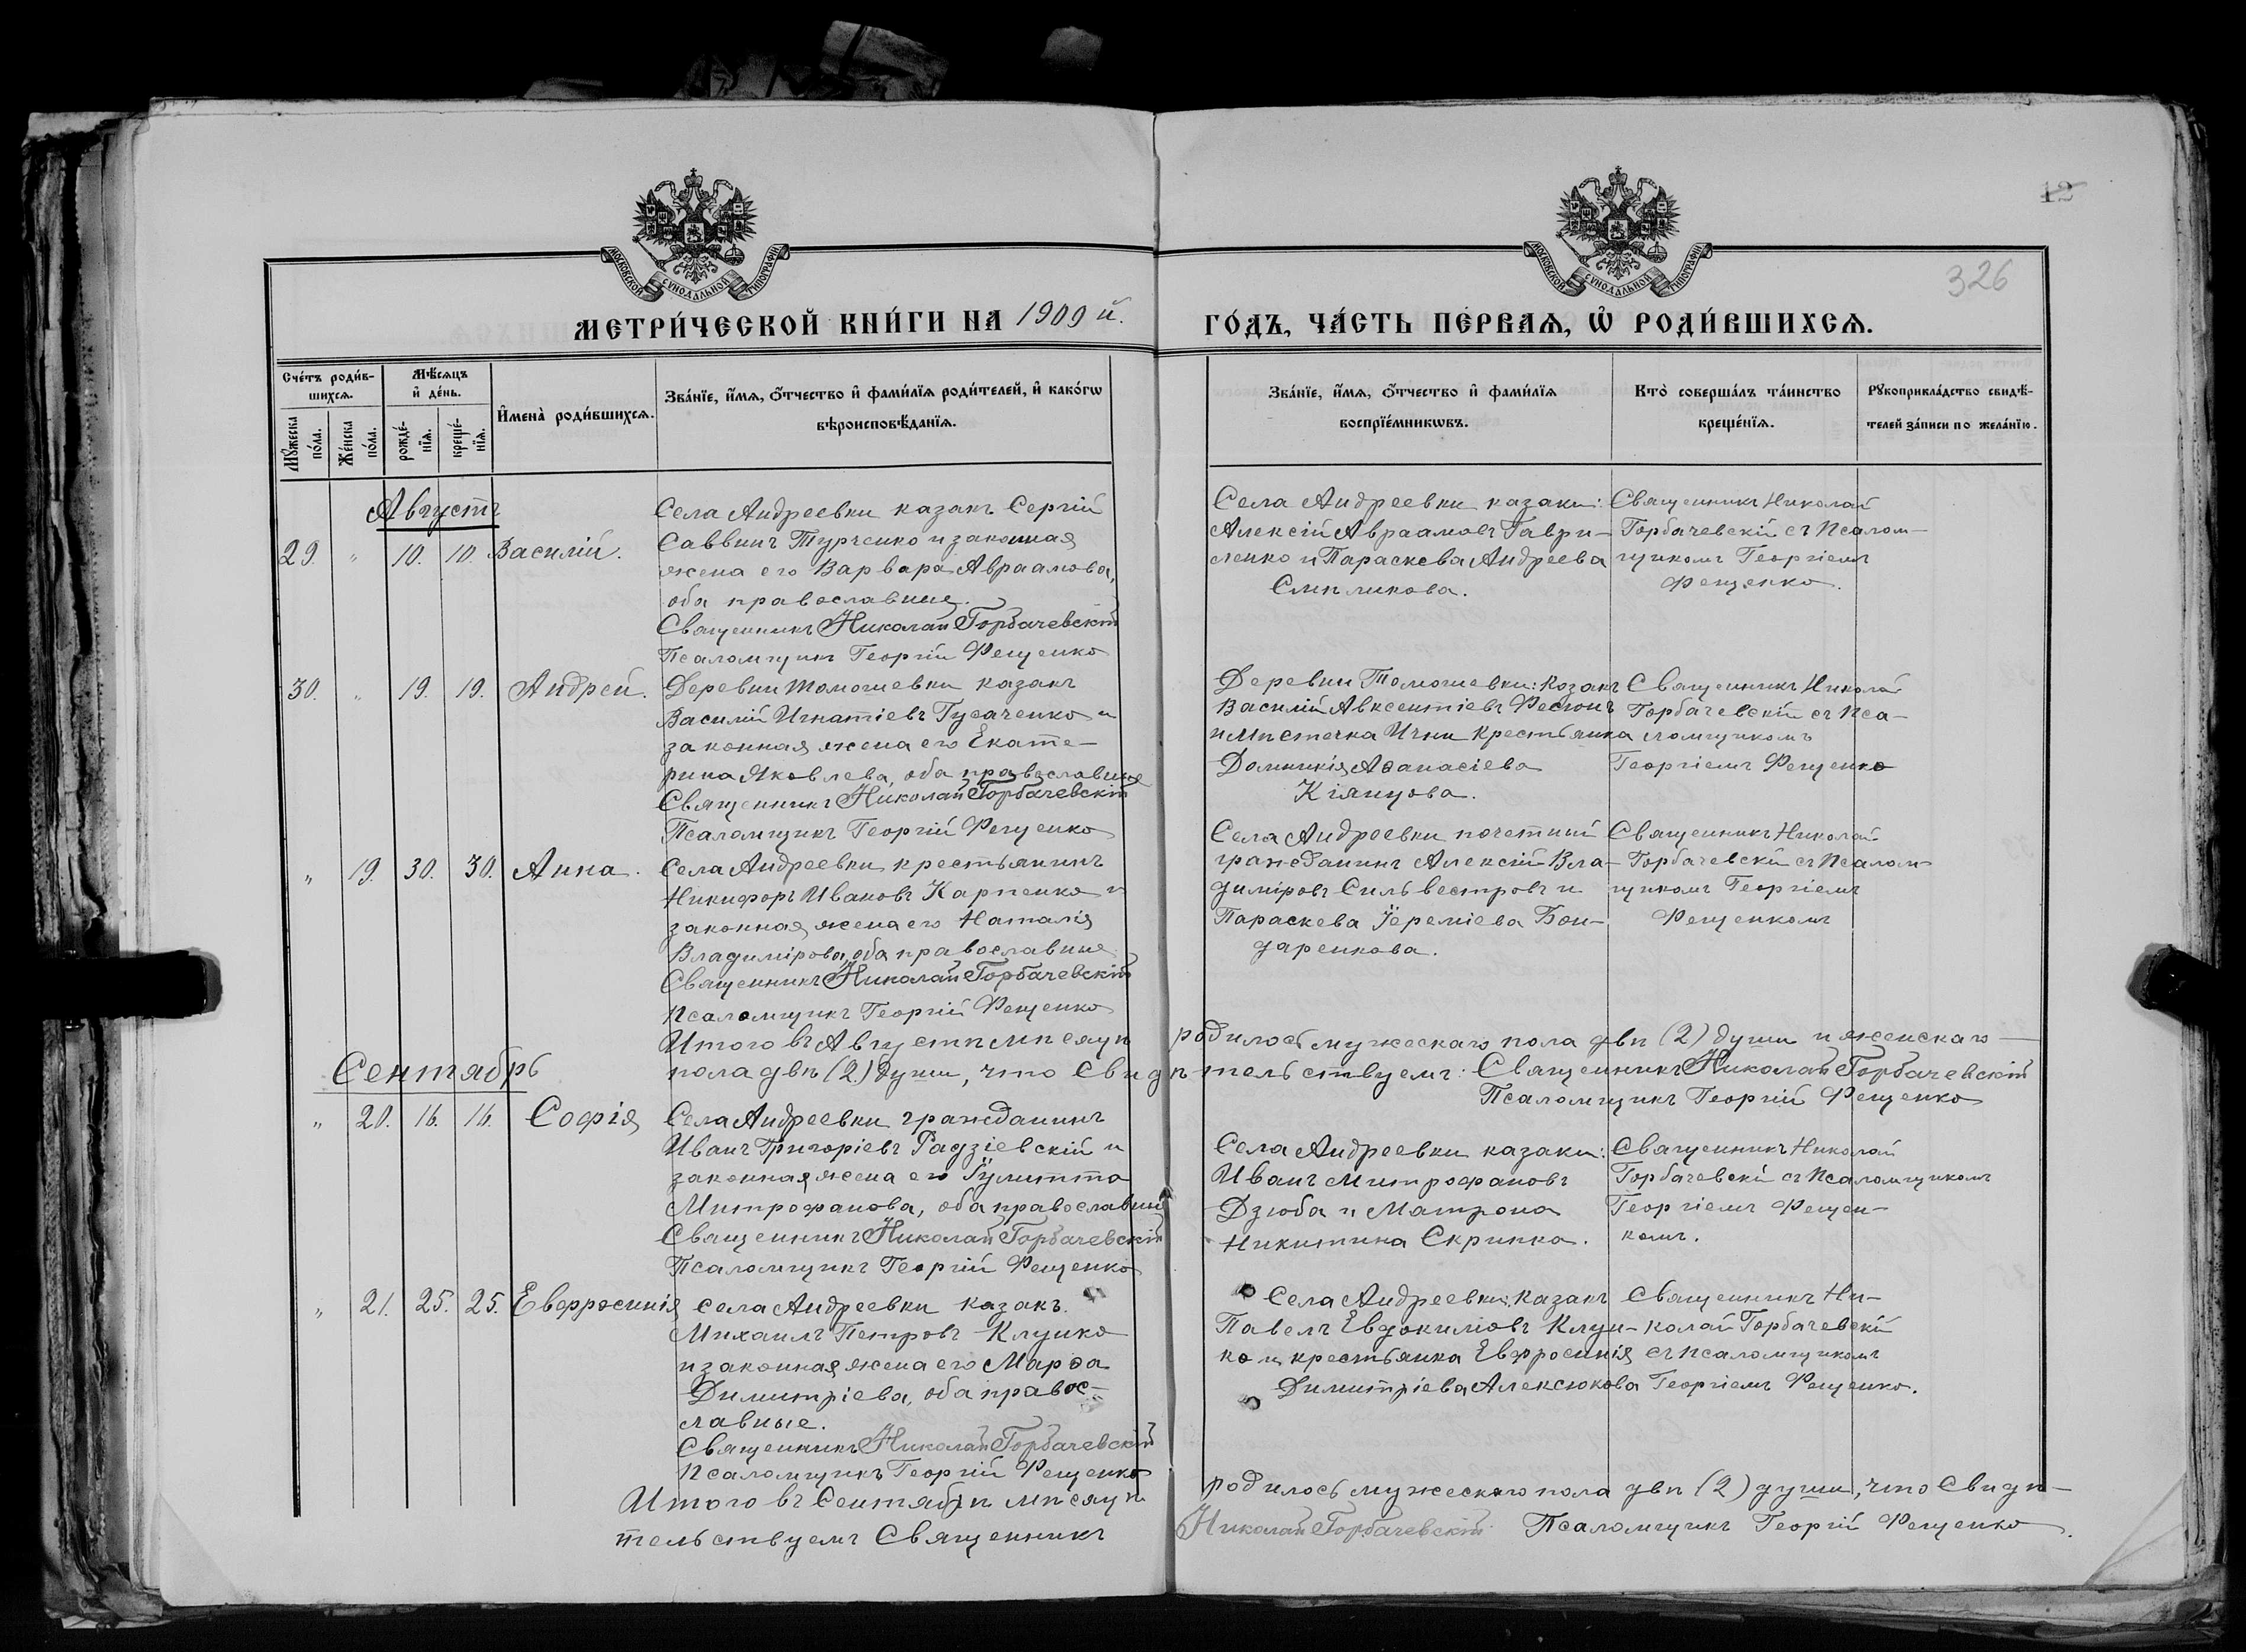 12
326
МОСКОВСКОЙ СѴНОДАЛЬНОЙ ТИПОГРАФІИ
МОСКОВСКОЙ СѴНОДАЛЬНОЙ ТИПОГРАФІИ
МЕТРИ́ЧЕСКОЙ КНИ́ГИ НА 1909 й.
ГО́ДЪ, ЧА́СТЬ ПЕ́РВАѦ, Ѽ РОДИ́ВШИХСѦ.
Сче́тъ роди́в-
шихсѧ.
Мꙋ́жеска по́ла.
Же́нска по́ла.
Мѣ́сѧцъ
и҆ де́нь.
рожде́-
нїѧ.
креще́-
нїѧ.
И҆мена̀ роди́вшихсѧ.
Зва́нїе, и҆́мѧ, ѻ҆́тчество и҆ фами́лїѧ роди́телей, и҆ како́гѡ
вѣроисповѣ́данїѧ.
Зва́нїе, и҆́мѧ, ѻ҆́тчество и҆ фами́лїѧ
воспрїе́мникѡвъ.
Кто̀ соверша́лъ та́инство
креще́нїѧ.
Рꙋкоприкла́дство свидѣ́-
телей за́писи по жела́нїю.
Августъ
29. " 10. 10. Василій.
Села Андреевки казакъ Сергій
Саввинъ Турченко и законная
жена его Варвара Авраамова,
оба православные.
Священникъ Николай Горбачевскій
Псаломщикъ Георгій Фещенко
Села Андреевки казаки:
Алексій Авраамовъ Гаври-
ленко и Параскева Андреева
Священникъ Николай
Горбачевскій съ Псалом-
щикомъ Георгіемъ
Фещенко.
30. " 19. 19. Андрей.
Деревни Томашевки казакъ
Василій Игнатіевъ Гусаченко и
законная жена его Екате-
рина Яковлева, оба православные
Священникъ Николай Горбачевскій
Псаломщикъ Георгій Фещенко
Деревни Томашевки: козакъ
Василій Авксентіевъ
и мѣстечка Ични крестьянка
Домникія Аѳанасіева
Кіянцова.
Священникъ Николай
Горбачевскій съ Пса-
ломщикомъ
Георгіемъ Фещенко
" 19. 30. 30. Анна.
Села Андреевки крестьянинъ
Никифоръ Ивановъ Карпенко и
законная жена его Наталія
Владимірова, оба православные
Священникъ Николай Горбачевскій
Псаломщикъ Георгій Фещенко
Села Андреевки почетный
гражданинъ Алексій Вла-
диміровъ Сильвестровъ и
Параскева Іереміева Бон-
даренкова.
Священникъ Николай
Горбачевскій съ Псалом-
щикомъ Георгіемъ
Фещенкомъ
Итого въ Августѣ мѣсяцѣ родилось мужескаго пола двѣ (2) души и женскаго
пола двѣ (2) души, что свидѣтельствуемъ: Священникъ Николай Горбачевскій
Псаломщикъ Георгій Фещенко
Сентябрь
" 20. 16. 16. София
Села Андреевки гражданинъ
Иванъ Григоріевъ Радзіевскій и
законная жена его Іулитта
Митрофанова, оба православные
Священникъ Николай Горбачевскій
Псаломщикъ Георгій Фещенко
Села Андреевки казаки:
Иванъ Митрофановъ
Дзюба и Матрона
Никитина Скрипка.
Священникъ Николай
Горбачевскій съ Псаломщикомъ
Георгіемъ Фещен-
комъ.
" 21. 25. 25. Евфросинія
Села Андреевки казакъ
Михаилъ Петровъ Клунко
и законная жена его Марѳа
Димитріева, оба правос-
лавные.
Священникъ Николай Горбачевскій
Псаломщикъ Георгій Фещенко
Села Андреевки: казакъ
Павелъ Евдокимовъ Клун-
ко и крестьянка Евфросинія
Димитріева Алексюкова
Священникъ Ни-
колай Горбачевскій
съ псаломщикомъ
Георгіемъ Фещенко.
Итого въ Сентябрѣ мѣсяцѣ родилось мужескаго пола двѣ (2) души, что свидѣ-
тельствуемъ Священникъ Николай Горбачевскій Псаломщикъ Георгій Фещенко.